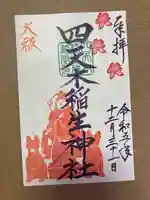 奉拝
令和五年
十二月三十一日
四天木稲生神社
大祓